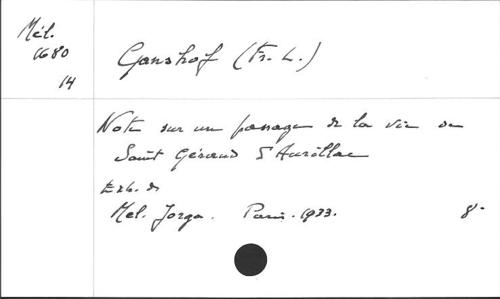 Mél.
1680
14
Ganshof (Fr. L.)
Note sur un passage de la vie de
Saint Géraud d'Aurillac
Extr. de
Mél. Jorga. Paris. 1933. 8°